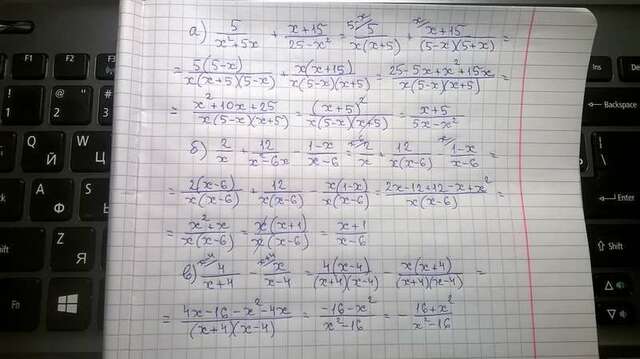 а) 5/(x²+5x) + (x+15)/(25-x²) = ⁵⁻ˣ⁄ 5/(x(x+5)) + ˣ⁄ (x+15)/((5-x)(5+x)) =
= 5(5-x)/(x(x+5)(5-x)) + x(x+15)/(x(5-x)(x+5)) = (25-5x+x²+15x)/(x(5-x)(x+5)) =
= (x²+10x+25)/(x(5-x)(x+5)) = (x+5)²/(x(5-x)(x+5)) = (x+5)/(5x-x²)
б) 2/x + 12/(x²-6x) - (1-x)/(x-6) = ˣ⁻⁶⁄ 2/x + 12/(x(x-6)) - ˣ⁄ (1-x)/(x-6) =
= 2(x-6)/(x(x-6)) + 12/(x(x-6)) - x(1-x)/(x(x-6)) = (2x-12+12-x+x²)/(x(x-6)) =
= (x²+x)/(x(x-6)) = x(x+1)/(x(x-6)) = (x+1)/(x-6)
в) ˣ⁻⁴⁄ 4/(x+4) - ˣ⁺⁴⁄ x/(x-4) = 4(x-4)/((x+4)(x-4)) - x(x+4)/((x+4)(x-4)) =
= (4x-16-x²-4x)/((x+4)(x-4)) = (-16-x²)/(x²-16) = - (16+x²)/(x²-16)
!
1
@
2
"
#
3
№
Q
Й
W
Ц
A
Ф
Z
Я
Shift
Ctrl
Ins
Del
Backspace
Enter
Shift
Ctrl